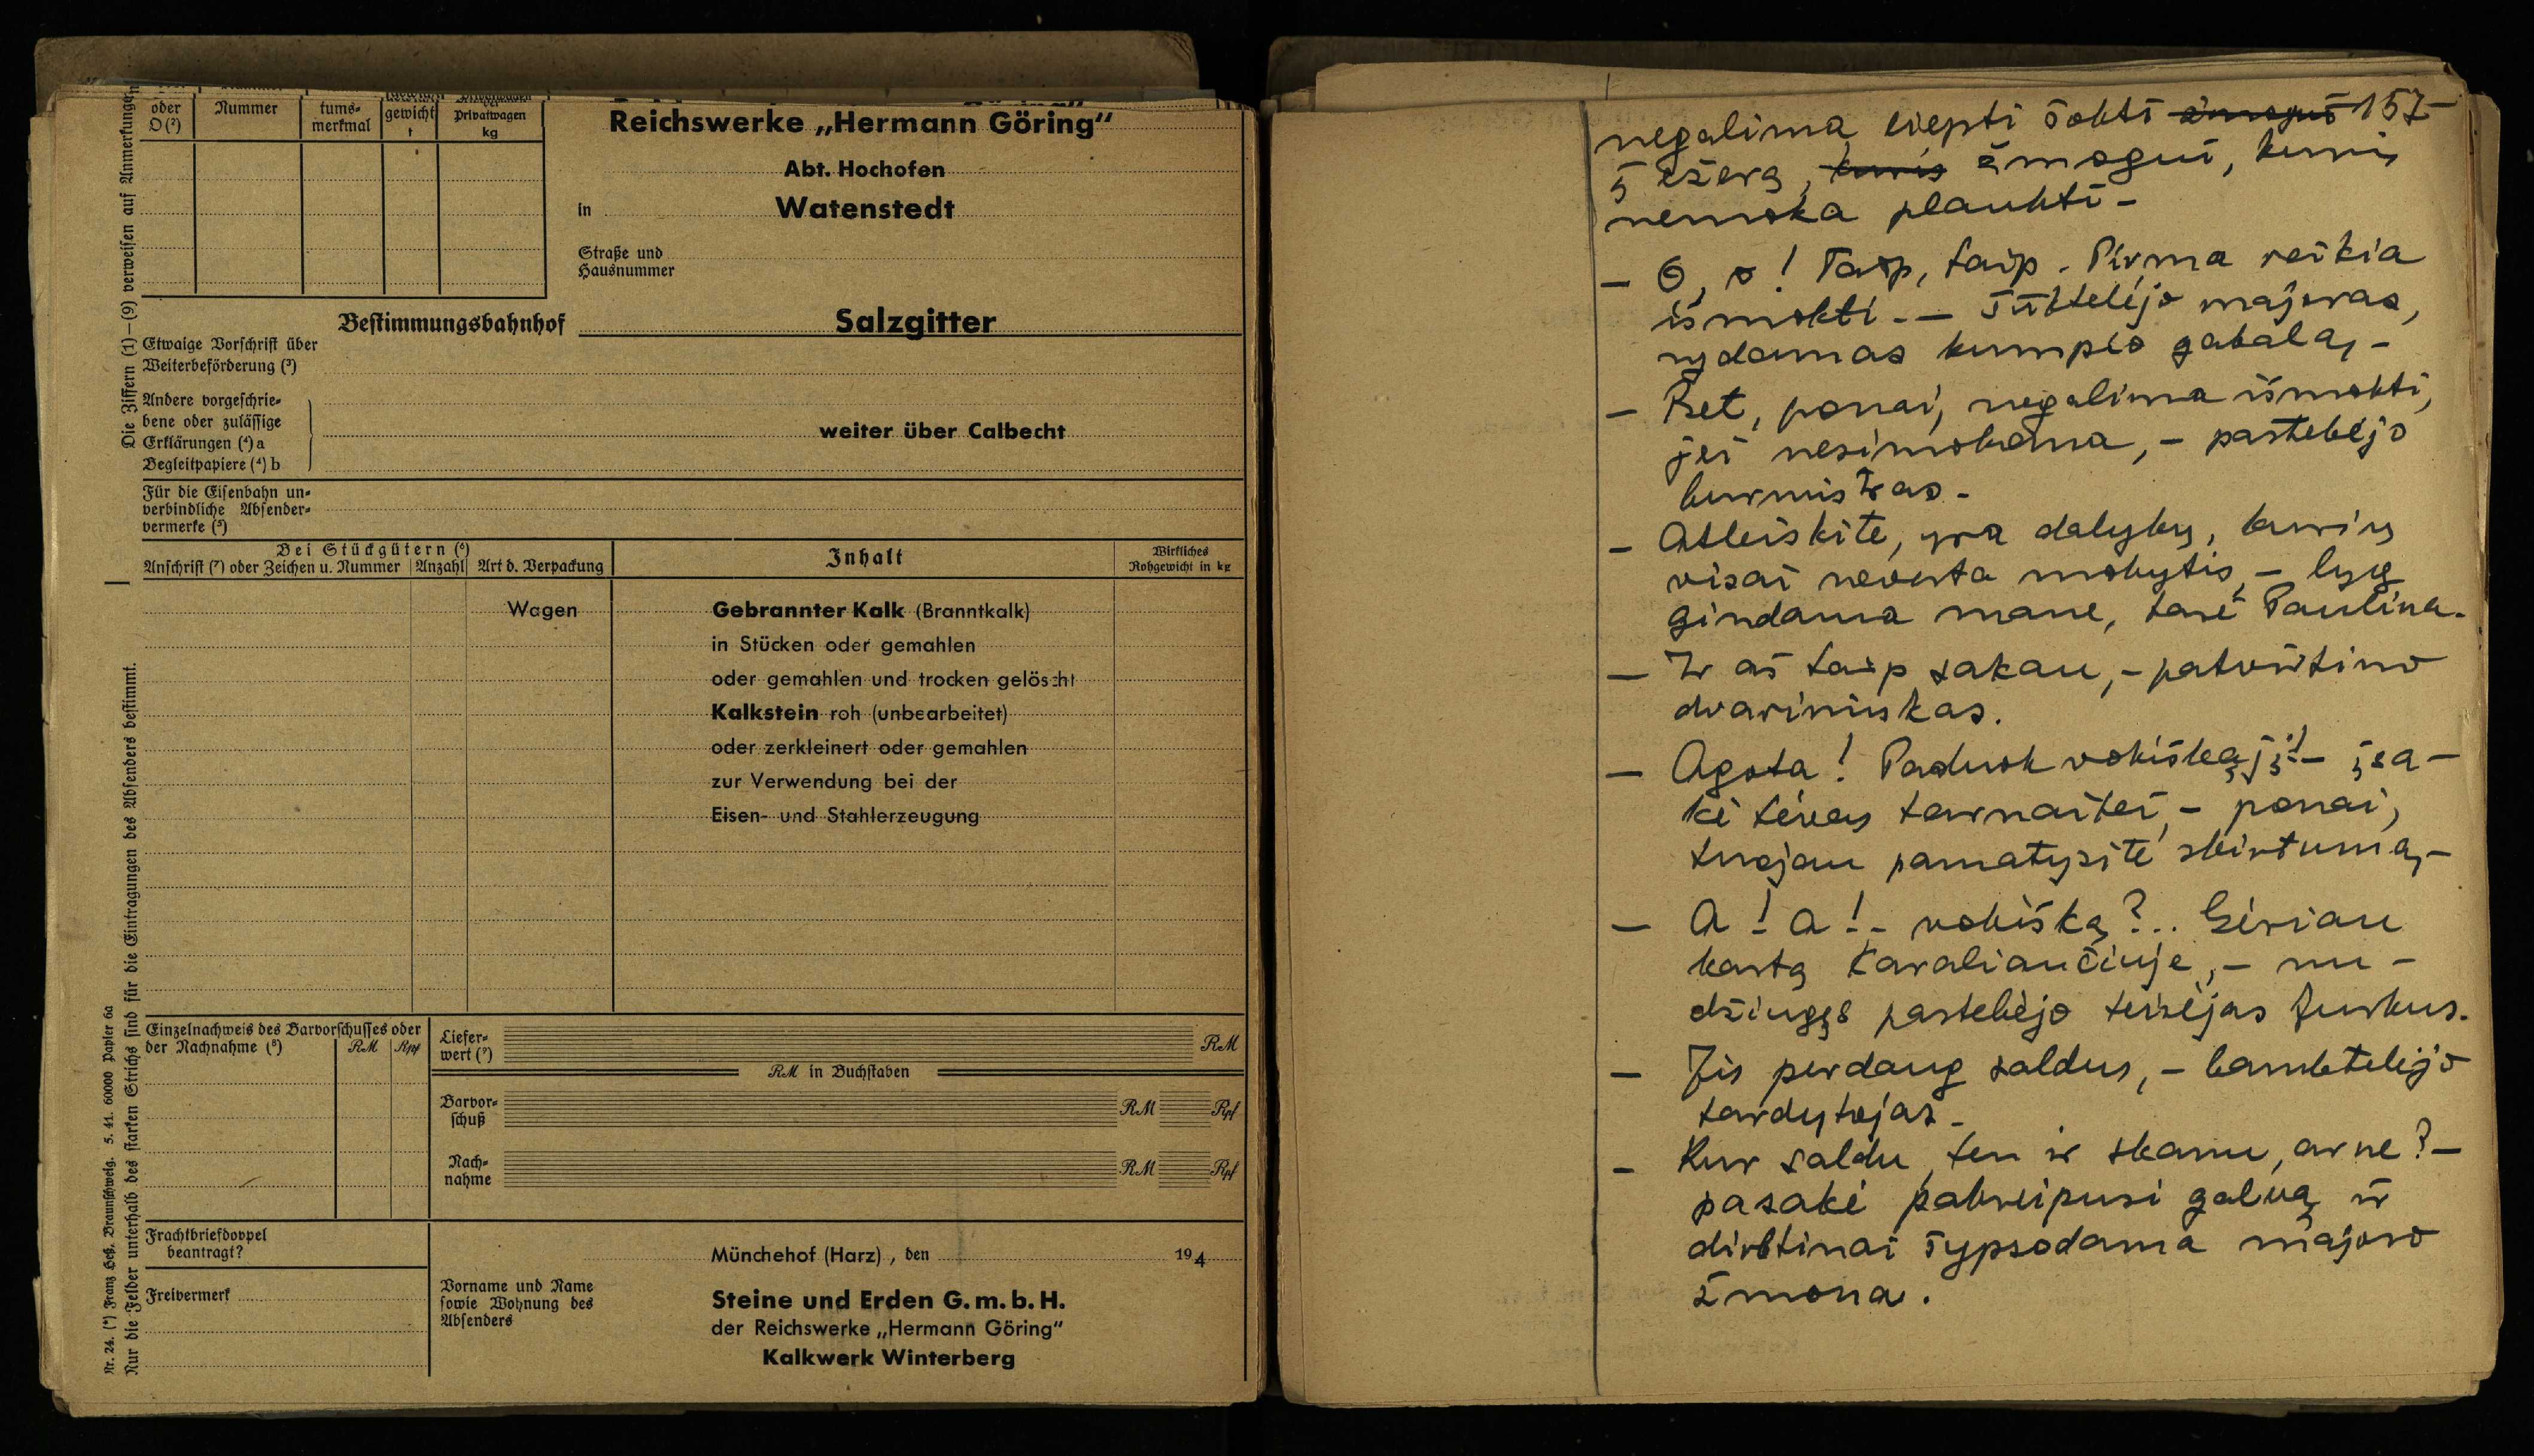 oder
O (²)
Nummer
tums-
merkmal
gewicht
t
Privatwagen
kg
Die Ziffern (1)—(9) verweisen auf Anmerkungen
Reichswerke „Hermann Göring"
Abt. Hochofen
in Watenstedt
Straße und
Hausnummer
Bestimmungsbahnhof Salzgitter
Etwaige Vorschrift über
Weiterbeförderung (³)
Andere vorgeschrie-
bene oder zulässige
Erklärungen (⁴) a
Begleitpapiere (⁴) b
weiter über Calbecht
Für die Eisenbahn un-
verbindliche Absender-
vermerke (⁵)
Bei Stückgütern (⁶)
Anschrift (⁷) oder Zeichen u. Nummer
Anzahl
Art d. Verpackung
Inhalt
Wirkliches
Rohgewicht in kg
Wagen
Gebrannter Kalk (Branntkalk)
in Stücken oder gemahlen
oder gemahlen und trocken gelöscht
Kalkstein roh (unbearbeitet)
oder zerkleinert oder gemahlen
zur Verwendung bei der
Eisen- und Stahlerzeugung
Einzelnachweis des Barvorschusses oder
der Nachnahme (⁸) RM Rpf
Liefer-
wert (⁹) RM
RM in Buchstaben
Barvor-
schuß RM Rpf
Nach-
nahme RM Rpf
Frachtbriefdoppel
beantragt?
Freivermerk
Münchehof (Harz), den 194
Vorname und Name
sowie Wohnung des
Absenders
Steine und Erden G. m. b. H.
der Reichswerke „Hermann Göring"
Kalkwerk Winterberg
Nr. 24. (*) Franz Heß, Braunschweig. 5. 41. 60000 Papier 6a
Nur die Felder unterhalb des starken Strichs sind für die Eintragungen des Absenders bestimmt.
negalima liepti šokti žmogui 157
į ežerą, kuris žmogui, kuris
nemoka plaukti-
— O, o! Taip, taip. Pirma reikia
išmokti. — šūktelėjo majoras,
rydamas kumpio gabalą,-
— Bet, ponai, negalima išmokti,
jei nesimokoma, - pastebėjo
burmistras-
— Atleiskite, yra dalykų, kurių
visai neverta mokytis, - lyg
gindama mane, tarė Paulina.
— Ir aš taip sakau, - patvirtino
dvarininkas.
— Agota! Paduok vokiškąjį! - įsa-
kė tėvas tarnaitei, - ponai,
tuojau pamatysite skirtumą,-
— A! A! - vokišką?.. Gėriau
kartą Karaliaučiuje, - nu-
džiugęs pastebėjo teisėjas Jurkus.
— Jis perdaug saldus, - bambtelėjo
tardytojas-
— Kur saldu, ten ir skanu, ar ne? -
pasakė pakreipusi galvą ir
dirbtinai šypsodama majoro
žmona.